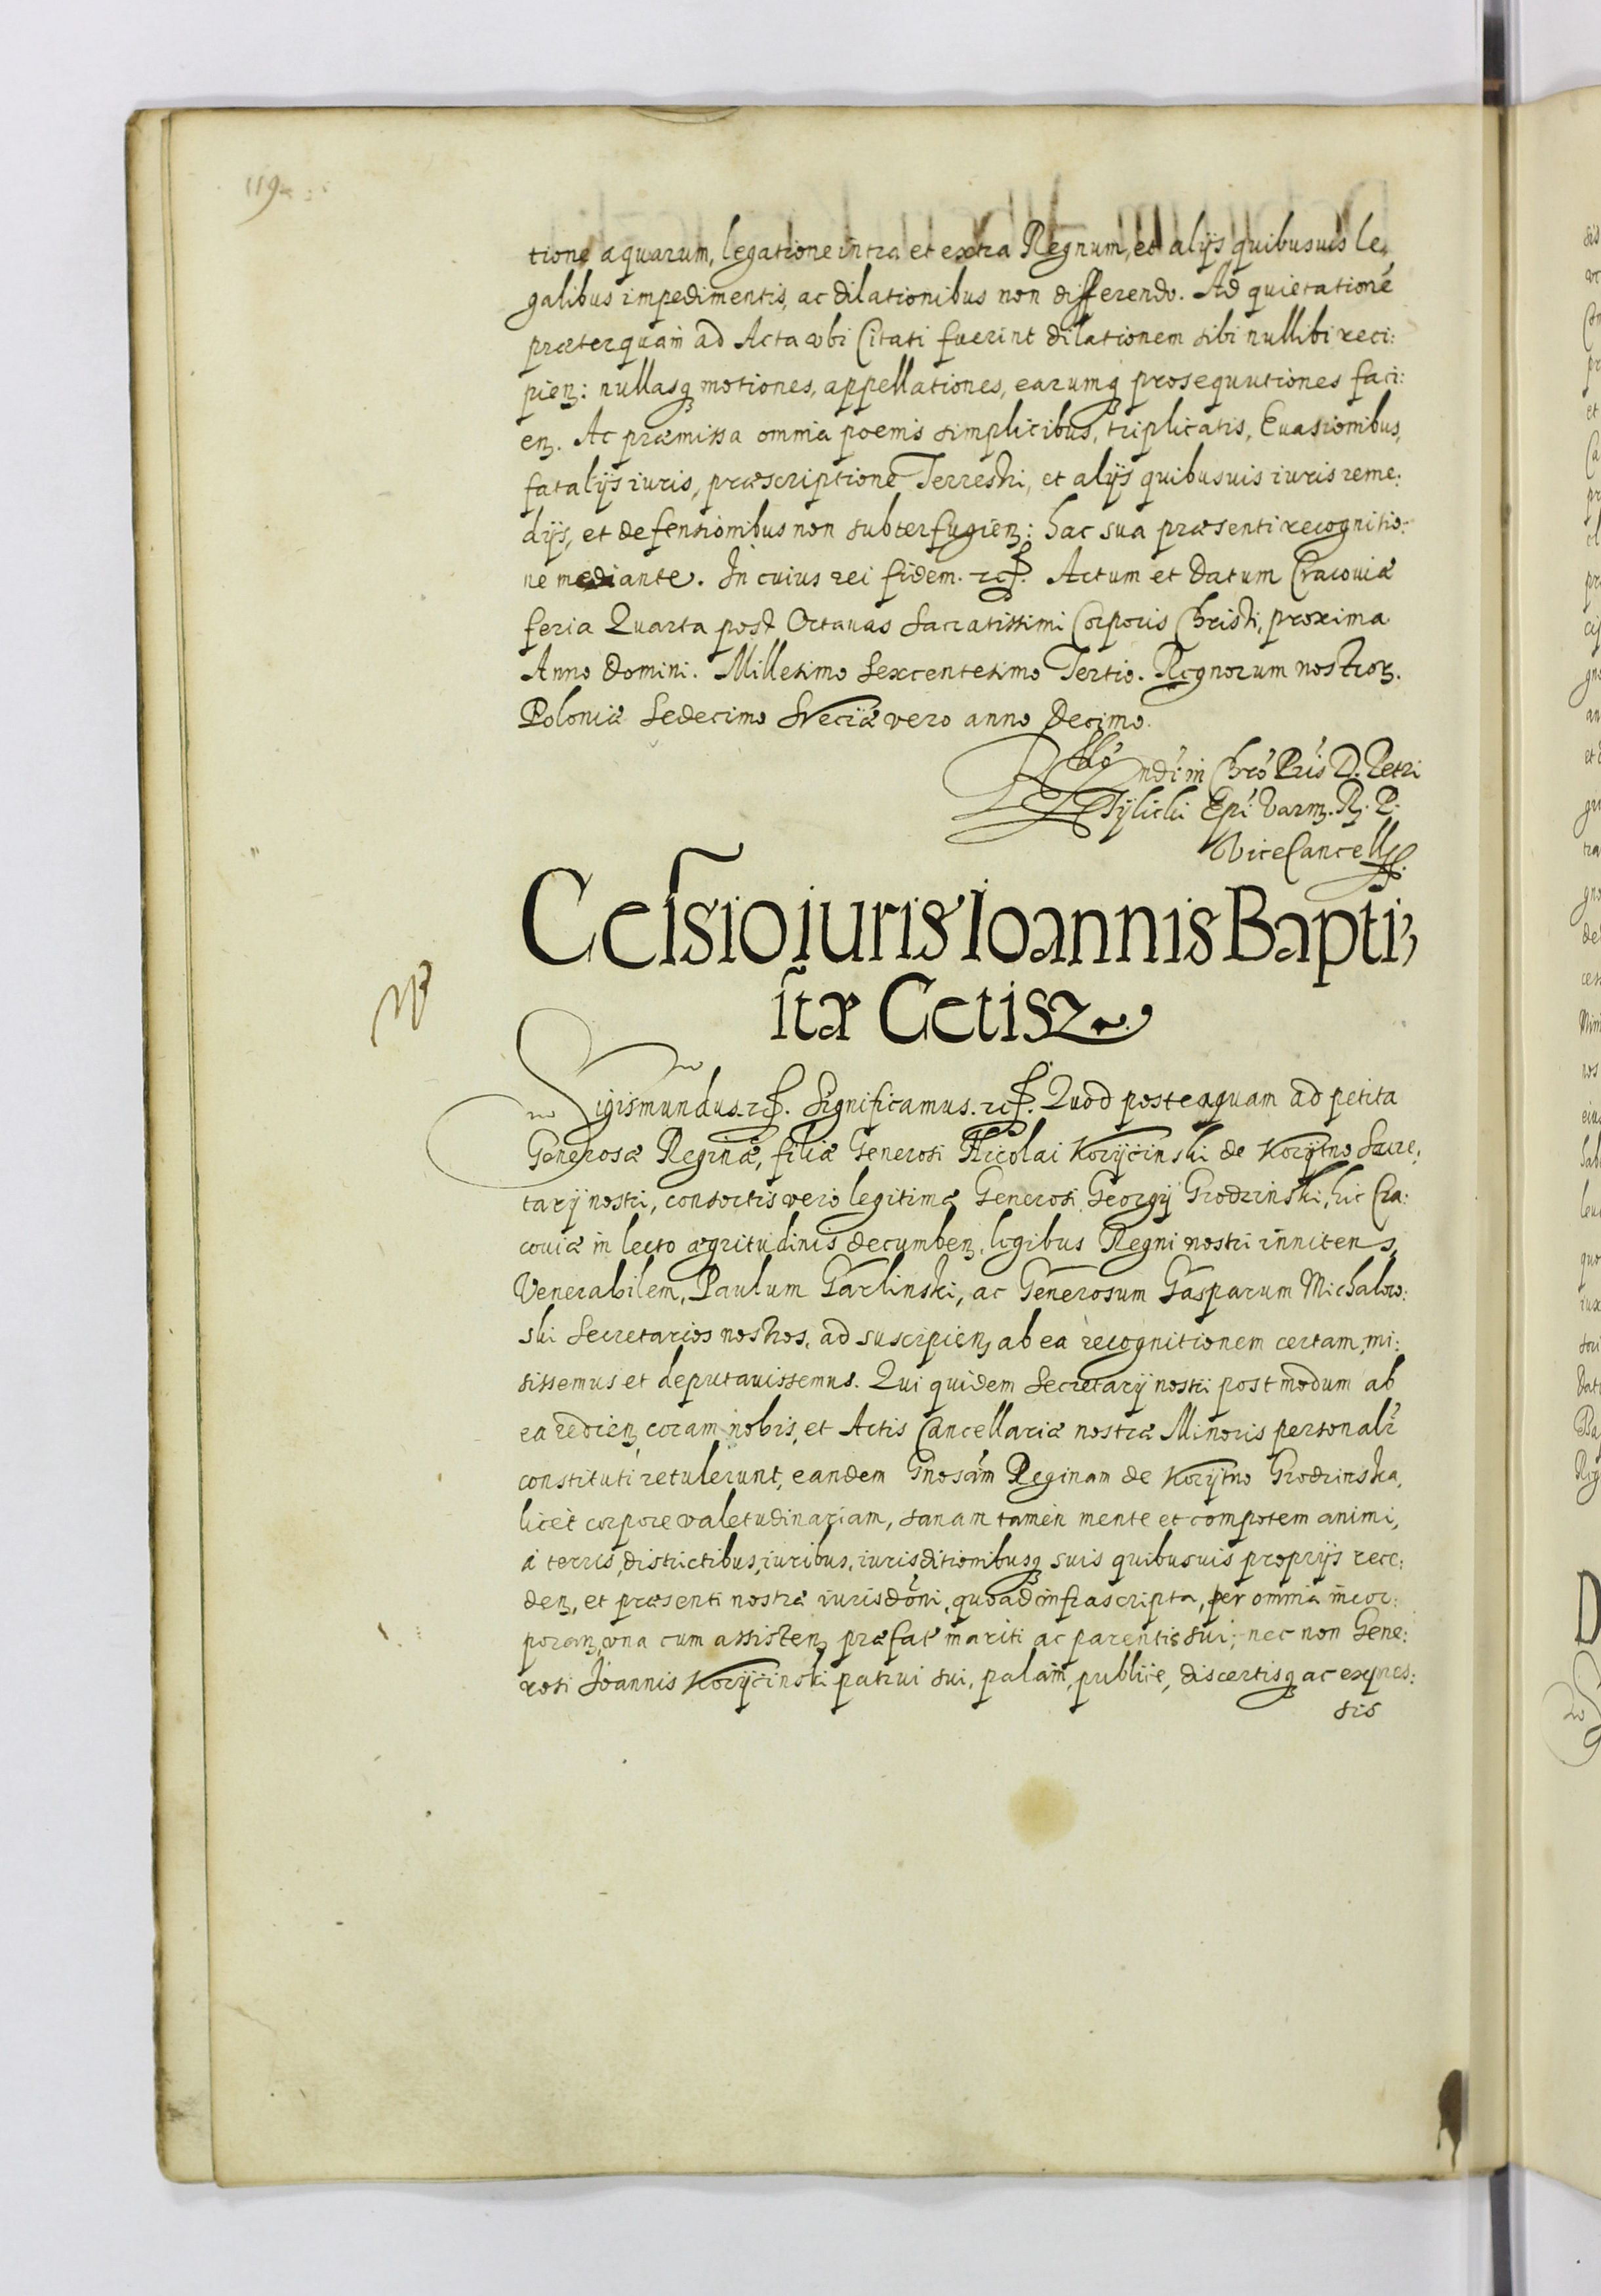 119
tione aquarum, legatione intra et extra Regnum, et alijs quibusuis le,
galibus impedimentis, ac dilationibus non differendo. Ad quietationē
præterquam ad Acta vbi Citati fuerint dilationem sibi nullibi reci:
pieɳ: nullasqꝫ motiones, appellationes, earumqꝫ prosequutiones faci:
eɳ. Ac præmissa omnia poenis simplicibus, triplicatis, Euasionibus,
fatalijs iuris, præscriptione Terrestri, et alijs quibusuis iuris reme:
dijs, et defensionibus non subterfugieɳ: hac sua præsenti recognitio:
ne mediante. In cuius rei fidem. etc. Actum et Datum Cracouiæ
feria Quarta post Octauas Sacratissimi Corporis Christi, proxima
Anno Domini. Millesimo Sexcentesimo Tertio. Regnorum nostroꝝ.
Poloniæ Sedecimo Sveciæ vero anno Decimo.
Rllō Rndi in Chrō Pris D. Petri
Tylicki Epi Varm. R. P.
ViceCancell.
Celsio iuris Ioannis Bapti,
stæ Cetis
Sigismundus. etc. Significamus. etc. Quod posteaquam ad petita
Generosæ Reginæ, filiæ Generosi Nicolai Koryciński de Korytno Secre,
tarij nostri, consortis vero legitimæ Generosi Georgij Grodzinski, hic Cra:
couiæ in lecto ægritudinis decumbeɳ, legibus Regni nostri innitens,
Venerabilem, Paulum Garlinski, ac Generosum Gasparum Michalow:
ski Secretarios nostros, ad suscipieɳ ab ea recognitionem certam, mi:
sissemus et deputauissemus. Qui quidem Secretarij nostri postmodum ab
ea redieɳ coram nobis, et Actis Cancellariæ nostræ Minoris personalr
constituti retulerunt, eandem Gnosam Reginam de Korytno Grodzinska,
licet corpore valetudinariam, sanam tamen mente et compotem animi,
a terris, districtibus, iuribus, iurisditionibusqꝫ suis quibusuis proprijs rece:
deɳ, et præsenti nostræ iurisdōni, quoad infrascripta, per omnia incor:
poraɳ, vna cum assisteɳ præfati mariti ac parentis sui, nec non Gene:
rosi Ioannis Koryciński patrui sui, palam, publice, disertisqꝫ ac expres:
sis